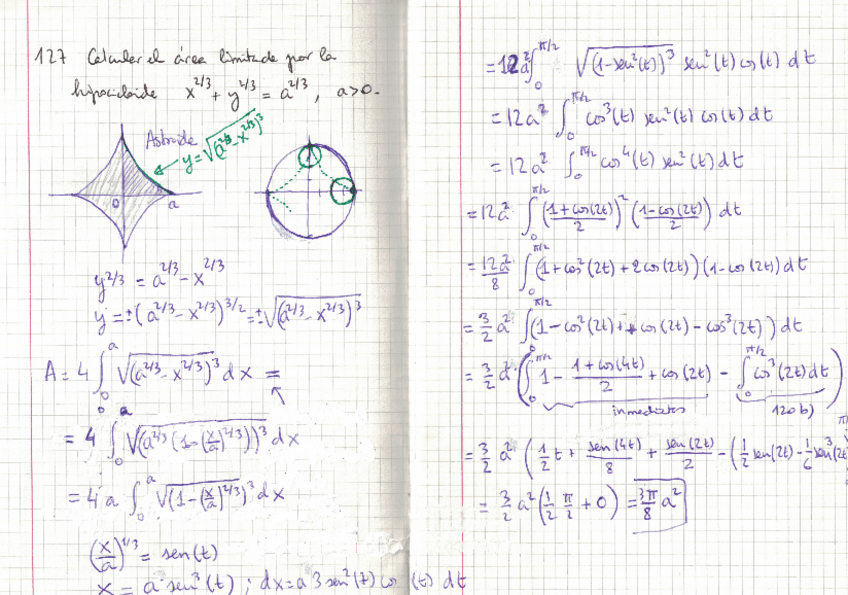 127 Calcular el área limitada por la
hipocicloide x^{2/3} + y^{2/3} = a^{2/3}, a>0.
Astroide
y = √(a^{2/3} - x^{2/3})^3
0 a
y^{2/3} = a^{2/3} - x^{2/3}
y = ±(a^{2/3} - x^{2/3})^{3/2} = ±√(a^{2/3} - x^{2/3})^3
A = 4 ∫_0^a √(a^{2/3} - x^{2/3})^3 dx =
= 4 ∫_0^a √(a^{2/3} (1 - (x/a)^{2/3}))^3 dx
= 4 a ∫_0^a √(1 - (x/a)^{2/3})^3 dx
(x/a)^{1/3} = sen(t)
x = a sen^3(t) ; dx = a 3 sen^2(t) cos(t) dt
= 12a^2 ∫_0^{π/2} √(1-sen^2(t))^3 sen^2(t) cos(t) dt
= 12a^2 ∫_0^{π/2} cos^3(t) sen^2(t) cos(t) dt
= 12a^2 ∫_0^{π/2} cos^4(t) sen^2(t) dt
= 12a^2 ∫_0^{π/2} ((1+cos(2t))/2)^2 ((1-cos(2t))/2) dt
= 12a^2/8 ∫_0^{π/2} (1+cos^2(2t)+2cos(2t))(1-cos(2t)) dt
= 3/2 a^2 ∫_0^{π/2} (1-cos^2(2t)+cos(2t)-cos^3(2t)) dt
= 3/2 a^2 (∫_0^{π/2} 1 - (1+cos(4t))/2 + cos(2t) - ∫_0^{π/2} cos^3(2t) dt)
inmediatas 120 b)
= 3/2 a^2 (1/2 t + sen(4t)/8 + sen(2t)/2 - (1/2 sen(2t) - 1/6 sen^3(2t
= 3/2 a^2 (1/2 π/2 + 0) = 3π/8 a^2